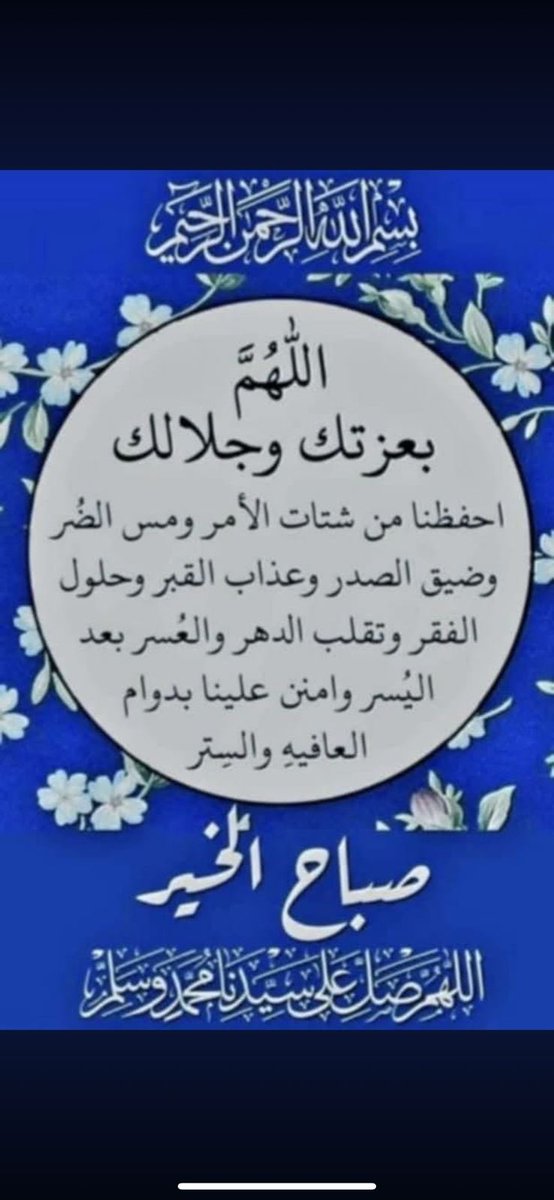 بِسْمِ اللَّهِ الرَّحْمَنِ الرَّحِيمِ
اللّٰهُمَّ
بعزتك وجلالك
احفظنا من شتات الأمر ومس الضُر
وضيق الصدر وعذاب القبر وحلول
الفقر وتقلب الدهر والعُسر بعد
اليُسر وامنن علينا بدوام
العافيهِ والسِتر
صباح الخير
اللَّهُمَّ صَلِّ عَلَى سَيِّدِنَا مُحَمَّدٍ وَسَلِّمْ